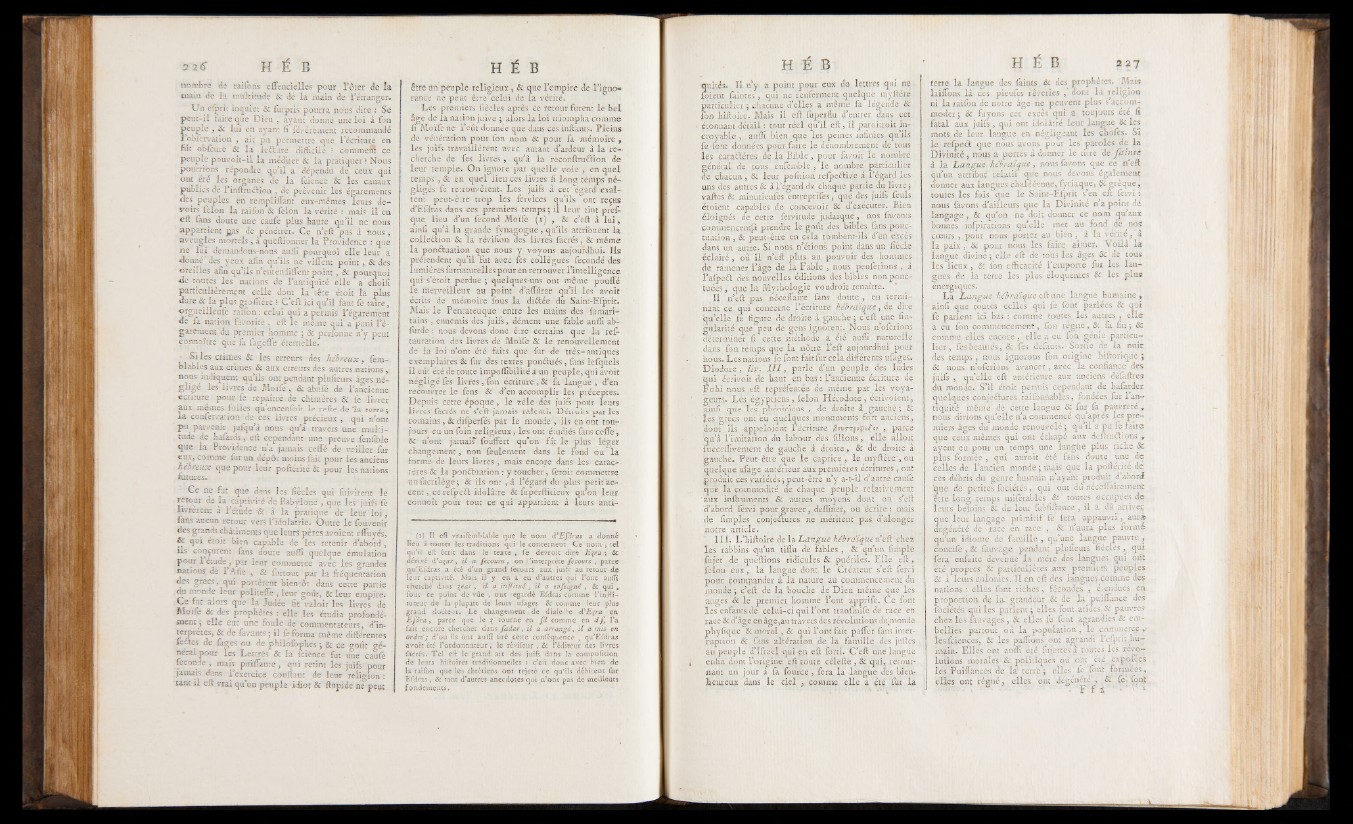 226 H É B
nombre de raisons essencielles pour l'ôter de la
main de la multitude & de la main de l'étranger.
Un esprit inquiet & surpris pourra nous dire : Se
peut-il faire que Dieu , ayant donné une loi à son
peuple , & lui en ayant si sévèrement recommandé
l'observation , ait pu permettre que l'écriture en
fût obscure & la lecture difficile ? comment ce
peuple pouvoit-il la méditer & la pratiquer ? Nous
pourrions répondre qu'il a dépendu de ceux qui
ont été les organes de la science & les canaux
publics de l'instruction , de prévenir les égarements
des peuples en remplissant eux-mêmes leurs de-
voirs selon la raison & selon la vérité : mais il en
est sans doute une cause plus haute qu'il ne nous
appartient pas de pénétrer. Ce n'est pas à nous ,
aveugles mortels , à questionner la Providence : que
ne lui demandons-nous aussi pourquoi elle leur a
donné des yeux afin qu'ils ne vissent point , & des
oreilles afin qu'ils n'entendissent point , & pourquoi
de toutes les nations de l'antiquité elle a choisi
particulièrement celle dont la tête étoit la plus
dure & la plus grossière ? C'est ici qu'il faut se taire,
orgueilleuse raison : celui qui a permis l'égarement
de sa nation favorite , est le même qui a puni l'é-
garement du premier homme ; & personne n'y peut
connoître que sa sagesse éternelle.
Si les crimes & les erreurs des hébreux , sem-
blables aux crimes & aux erreurs des autres nations ,
nous indiquent qu'ils ont pendant plusieurs âges né-
gligé les livres de Moïse , & abusé de l'ancienne
écriture pour se repaître de chimères & se livrer
aux mêmes folies qu'encensoit le reste de la terre ;
la conservation de ces livres précieux , qui n'ont
pu parvenir jusqu'à nous qu'à travers une multi-
tude de hasards , est cependant une preuve sensible
que la Providence n'a jamais cessé de veiller sur
eux, comme sur un dépôt moins fait pour les anciens
hébreux que pour leur postérité & pour les nations
futures.
Ce ne fut que dans les siècles qui suivirent le
retour de la captivité de Babylone , que les juifs se
livrèrent à l'étude & à la pratique de leur loi,
sans aucun retour vers l'idolatrie. Outre le souvenir
des grands châtiments que leurs pères avoient essuyés,
& qui étoit bien capable de les retenir d'abord ,
ils conçurent sans doute aussi quelque émulation
pour l'étude , par leur commerce avec les grandes
nations de l'Asie , & surtout par la fréquentation
des grecs , qui portèrent bientôt dans cette partie
du monde leur politesse , leur goût, & leur empire.
Ce fut alors que la Judée fit valoir les livres de
Moïse & des prophètes : elle les étudia profondé-
ment ; elle eut une foule de commentateurs , d'in-
terprètes, & de savants ; il se forma même différentes
sectes de sages ou de philosophes ; & ce goût gé-
néral pour les Lettres & la science fut une cause
seconde , mais puissante , qui retint les juifs pour
jamais dans l'exercice constant de leur religion :
tant il est vrai qu'un peuple idiot & stupide ne peut
H É B
être un peuple religieux , & que l'empire de l'igno-
rance ne peut être celui de la vérité.
Les premiers siècles après ce retour furent le bel
âge de la nation juive ; alors la loi triompha comme
si Moïse ne l'eût donnée que dans ces instants. Pleins
de vénération pour son nom & pour sa mémoire ,
les juifs travaillèrent avec autant d'ardeur à la re-
cherche de ses livres , qu'à la reconstruction de
leur temple. On ignore par quelle voie , en quel
temps , & en quel lieu ces livres si long temps né-
gligés se retrouvèrent. Les juifs à cet égard exal-
tent peut-être trop les services qu'ils ont reçus
d'Esdras dans ces premiers temps ; il leur tint pres-
que lieu d'un second Moïse (1) , & c'est à lui ,
ainsi qu'à la grande synagogue, qu'ils attribuent la
collection & la révision des livres sacrés , & même
la ponctuation que nous y voyons aujourdhui. Ils
prétendent qu'il fut avec ses collègues secondé des
lumières surnaturelles pour en retrouver l'intelligence
qui s'étoit perdue ; quelques-uns ont même poussé
le merveilleux au point d'assûrer qu'il les avoit
écrits de mémoire sous la dictée du Saint-Esprit.
Mais le Pentateuque entre les mains des samari-
tains , ennemis des juifs, dément une fable aussi ab-
surde : nous devons donc être certains que la res-
tauration des livres de Moïse & le renouvellement
de la loi n'ont été faits que sur de très-antiques
exemplaires & sur des textes ponctués , sans lesquels
il eût été de toute impossibilité à un peuple, qui avoit
négligé ses livres , son écriture , & sa langue , d'en
recouvrer le sens & d'en accomplir les préceptes.
Depuis cette époque , le zèle des juifs pour leurs
livres sacrés ne s'est jamais ralenti. Détruits par les
romains , & dispersés par le monde , ils en ont tou-
jours eu un soin religieux , les ont étudiés sans cesse,
& n'ont jamais souffert qu'on fît le plus léger
changement , non seulement dans le fond ou la
forme de leurs livres , mais encore dans les carac-
tères & la ponctuation : y toucher, seroit commettre
un sacrilège ; & ils ont , à l'égard du plus petit ac-
cent, ce respect idolâtre & superstitieux qu'on leur
connoît pour tout ce qui appartient à leurs anti-
(1) Il est vraisemblable que le nom d'Esdras a donné
lieu à toutes les traditions qui le concernent. Ce nom , tel
qu'il est écrit dans le texte , se devroit dire Ezra ; &
dérivé d'azar , il a secouru , on l'interprète secours , parce
qu'Esdras a été d'un grand secours aux juifs au retour de
leur captivité. Mais il y en a eu d'autres qui l'ont aussi
cherché dans zehr , il a instruit , il a enseigné , & qui ,
sous ce point de vûe , ont regardé Esdras comme l'insti-
tuteur de la plupart de leurs usages & comme leur plus
grand docteur. Le changement de dialecte d'Ezra en
Esdra , parce que le z tourne en sd comme en ds, l'a
fait encore chercher dans sader , il a arrangé, il a mis en
ordre ; d'où ils ont aussi tiré cette conséquence , qu'Esdras
avoit été l'ordonnateur , le réviseur , & l'éditeur des livres
sacrés. Tel est le grand art des juifs dans la composition
de leurs histoires traditionnelles : c'est donc avec bien de
la raison que les chrétiens ont rejeté ce qu'ils débitent sur
Esdras , & tant d'autres anecdotes qui n'ont pas de meilleurs
fondements.
H É B
quités. Il n'y a point pour eux de lettres qui ne
soient saintes , qui ne renferment quelque mystère
particulier ; chacune d'elles a même sa légende &
son histoire. Mais il est superflu d'entrer dans cet
étonnant détail : tout réel qu'il est, il paroîtroit in-
croyable , aussi bien que les peines infinies qu'ils
se sont données pour faire le dénombrement de tous
les caractères de la Bible , pour savoir le nombre
général de tous ensemble , le nombre particulier
de chacun , & leur position respective à l'égard les
uns des autres & à l'égard de chaque partie du livre ;
vastes & minutieuses entreprises , que des juifs seuls
étoient capables de concevoir & d'exécuter. Bien
éloignés de cette servitude judaïque , nos savants
commencent à prendre le goût des bibles sans ponc-
tuation, & peut-être en cela tombent-ils d'un excès
dans un autre. Si nous n'étions point dans un siècle
éclairé , où il n'est plus au pouvoir des hommes
de ramener l'âge de la Fable , nous penserions , à
l'aspect des nouvelles éditions des bibles non ponc-
tuées , que la Mythologie voudroit renaître.
Il n'est pas nécessaire sans doute , en termi-
nant ce qui concerne l'écriture hébraïque , de dire
qu'elle se figure de droite à gauche ; c'est une sin-
gularité que peu de gens ignorent. Nous n'oserions
déterminer si cette méthode a été aussi naturelle
dans son temps que la nôtre l'est aujourdhui pour
nous. Les nations se sont fait sur cela différents usages.
Diodore , liv. III , parle d'un peuple des Indes
qui écrivoit de haut en bas : l'ancienne écriture de
Fohi nous est représentée de même par les voya-
geurs. Les égyptiens , selon Hérodote , écrivoient ,
ainsi que les phéniciens , de droite à gauche ; &
les grecs ont eu quelques monuments fort anciens,
dont ils appeloient l'écriture βουστροφηδὸν , parce
qu'à l'imitation du labour des sillons , elle alloit
successivement de gauche à droite , & de droite à
gauche. Peut-être que le caprice , le mystère , ou
quelque usage antérieur aux premières écritures , ont
produit ces variétés ; peut-être n'y a-t-il d'autre cause
que la commodité de chaque peuple relativement
aux instruments & autres moyens dont on s'est
d'abord servi pour graver , dessiner, ou écrire : mais
de simples conjectures ne méritent pas d'alonger
notre article.
III. L'histoire de la Langue hébraïque n'est chez
les rabbins qu'un tissu de fables , & qu'un simple
sujet de questions ridicules & puériles. Elle est ,
selon eux , la langue dont le Créateur s'est servi
pour commander à la nature au commencement du
monde ; c'est de la bouche de Dieu même que les
anges & le premier homme l'ont apprise. Ce sont
les enfants de celui-ci qui l'ont transmise de race en
race & d'âge en âge, au travers des révolutions du monde
physique & moral , & qui l'ont fait passer sans inter-
ruption & sans altération de la famille des justes
au peuple d'Israël qui en est sorti. C'est une langue
enfin dont l'origine est toute céleste , & qui, retour-
nant un jour à sa source , sera la langue des bien-
heureux dans le ciel , comme elle a été sur la
H É B 227
terre la langue des saints & des prophètes. Mais
laissons là ces pieuses rêveries , dont la religion
ni la raison de notre âge ne peuvent plus s'accom-
moder ; & fuyons cet excès qui a toujours été si
fatal aux juifs , qui ont idolâtré leur langue & les
mots de leur langue en négligeant les choses. Si
le respect que nous avons pour les paroles de la
Divinité , nous a portés à donner le titre de sainte
à la Langue hébraïque , nous savons que ce n'est
qu'un attribut relatif que nous devons également
donner aux langues chaldéenne, syriaque, & grèque ,
toutes les fois que le Saint-Esprit s'en est servi :
nous savons d'ailleurs que la Divinité n'a point de
langage , & qu'on ne doit donner ce nom qu'aux
bonnes inspirations qu'elle met au fond de nos
cœurs , pour nous porter au bien , à la vérité , à
la paix , & pour nous les faire aimer. Voilà la
langue divine ; elle est de tous les âges & de tous
les lieux , & son efficacité l'emporte sur les lan-
gues de la terre les plus éloquentes & les plus
énergiques.
La Langue hébraïque est une langue humaine ,
ainsi que toutes celles qui se sont parlées & qui
se parlent ici bas : comme toutes les autres , elle
a eu son commencement , son règne , & sa fin ; &
comme elles encore , elle a eu son génie particu-
lier, ses beautés , & ses défauts. Sortie de la nuit
des temps , nous ignorons son origine historique ;
& nous n'oserions avancer , avec la confiance des
juifs , qu'elle est antérieure aux anciens désastres
du monde. S'il étoit permis cependant de hasarder
quelques conjectures raisonnables , fondées sur l'an-
tiquité même de cette langue & sur sa pauvreté ,
nous dirions qu'elle n'a commencé qu'après les pre-
miers âges du monde renouvelé ; qu'il a pu se faire
que ceux mêmes qui ont échapé aux destructions ,
ayent eu pour un temps une langue plus riche &
plus formée , qui auroit été sans doute une de
celles de l'ancien monde ; mais que la postérité de
ces débris du genre humain n'ayant produit d'abord
que de petites sociétés , qui ont dû nécessairement
être long temps misérables & toutes occupées de
leurs besoins & de leur subsistance , il a dû arriver
que leur langage primitif se sera appauvri , aura
dégénéré de race en race , & n'aura plus formé
qu'un idiome de famille , qu'une langue pauvre ,
concise , & sauvage pendant plusieurs siècles , qui
sera ensuite devenue la mère des langues qui ont
été propres & particulières aux premiers peuples
& à leurs colonies. Il en est des langues comme des
nations : elles sont riches , fécondes , étendues en
proportion de la grandeur & de la puissance des
sociétés qui les parlent ; elles sont arides & pauvres
chez les sauvages , & elles se sont agrandies & em-
bellies partout où la population , le commerce ,
les sciences, & les passions ont agrandi l'esprit hu-
main. Elles ont aussi été sujettes à toutes les révo-
lutions morales & politiques où ont été exposées
les Puissances de la terre ; elles se sont formées,
elles ont régné , elles ont dégénéré , & se sont
F f 2